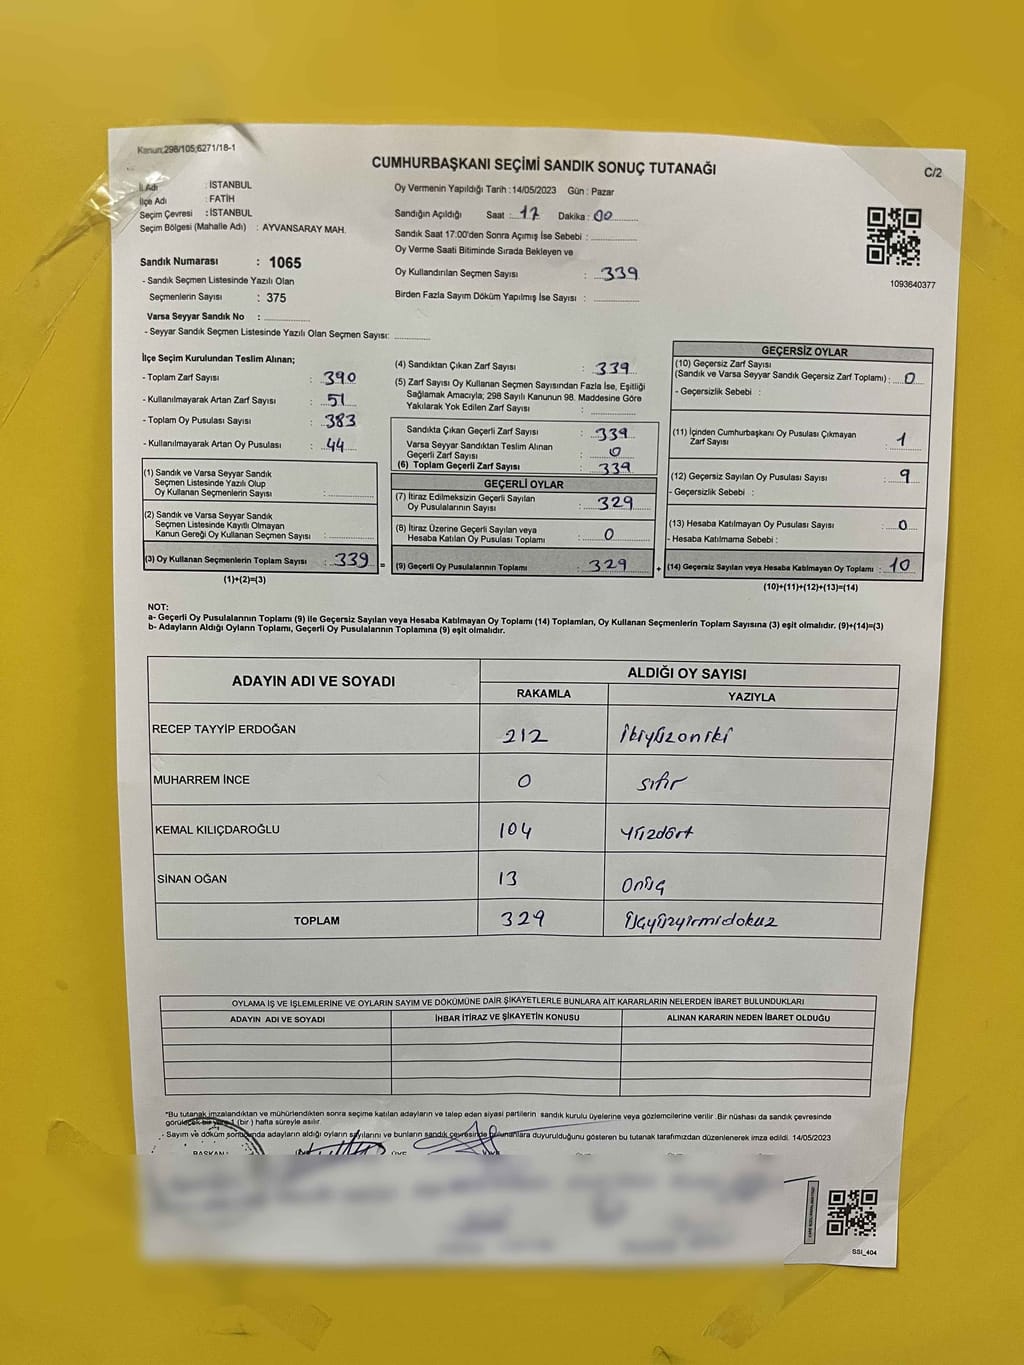 Kanun;298/105;6271/18-1
CUMHURBAŞKANI SEÇİMİ SANDIK SONUÇ TUTANAĞI
C/2
İl Adı : İSTANBUL
İlçe Adı : FATİH
Seçim Çevresi : İSTANBUL
Seçim Bölgesi (Mahalle Adı) : AYVANSARAY MAH.
Sandık Numarası : 1065
- Sandık Seçmen Listesinde Yazılı Olan
Seçmenlerin Sayısı : 375
Varsa Seyyar Sandık No :
- Seyyar Sandık Seçmen Listesinde Yazılı Olan Seçmen Sayısı:
Oy Vermenin Yapıldığı Tarih :14/05/2023 Gün : Pazar
Sandığın Açıldığı Saat : 17 Dakika : 00
Sandık Saat 17:00'den Sonra Açımış İse Sebebi :
Oy Verme Saati Bitiminde Sırada Bekleyen ve
Oy Kullandırılan Seçmen Sayısı : 339
Birden Fazla Sayım Döküm Yapılmış İse Sayısı :
1093640377
İlçe Seçim Kurulundan Teslim Alınan;
- Toplam Zarf Sayısı : 390
- Kullanılmayarak Artan Zarf Sayısı : 51
- Toplam Oy Pusulası Sayısı : 383
- Kullanılmayarak Artan Oy Pusulası : 44
(1) Sandık ve Varsa Seyyar Sandık
Seçmen Listesinde Yazılı Olup
Oy Kullanan Seçmenlerin Sayısı :
(2) Sandık ve Varsa Seyyar Sandık
Seçmen Listesinde Kayıtlı Olmayan
Kanun Gereği Oy Kullanan Seçmen Sayısı :
(3) Oy Kullanan Seçmenlerin Toplam Sayısı : 339 =
(1)+(2)=(3)
(4) Sandıktan Çıkan Zarf Sayısı : 339
(5) Zarf Sayısı Oy Kullanan Seçmen Sayısından Fazla İse, Eşitliği
Sağlamak Amacıyla; 298 Sayılı Kanunun 98. Maddesine Göre
Yakılarak Yok Edilen Zarf Sayısı :
Sandıkta Çıkan Geçerli Zarf Sayısı : 339
Varsa Seyyar Sandıktan Teslim Alınan
Geçerli Zarf Sayısı : 0
(6) Toplam Geçerli Zarf Sayısı : 339
GEÇERLİ OYLAR
(7) İtiraz Edilmeksizin Geçerli Sayılan
Oy Pusulalarının Sayısı : 329
(8) İtiraz Üzerine Geçerli Sayılan veya
Hesaba Katılan Oy Pusulası Toplamı : 0
(9) Geçerli Oy Pusulalarının Toplamı : 329 +
GEÇERSİZ OYLAR
(10) Geçersiz Zarf Sayısı
(Sandık ve Varsa Seyyar Sandık Geçersiz Zarf Toplamı) : 0
- Geçersizlik Sebebi :
(11) İçinden Cumhurbaşkanı Oy Pusulası Çıkmayan
Zarf Sayısı : 1
(12) Geçersiz Sayılan Oy Pusulası Sayısı : 9
- Geçersizlik Sebebi :
(13) Hesaba Katılmayan Oy Pusulası Sayısı : 0
- Hesaba Katılmama Sebebi :
(14) Geçersiz Sayılan veya Hesaba Katılmayan Oy Toplamı : 10
(10)+(11)+(12)+(13)=(14)
NOT:
a- Geçerli Oy Pusulalarının Toplamı (9) ile Geçersiz Sayılan veya Hesaba Katılmayan Oy Toplamı (14) Toplamları, Oy Kullanan Seçmenlerin Toplam Sayısına (3) eşit olmalıdır. (9)+(14)=(3)
b- Adayların Aldığı Oyların Toplamı, Geçerli Oy Pusulalarının Toplamına (9) eşit olmalıdır.
ADAYIN ADI VE SOYADI ALDIĞI OY SAYISI
RAKAMLA YAZIYLA
RECEP TAYYİP ERDOĞAN 212 İkiyüzoniki
MUHARREM İNCE 0 sıfır
KEMAL KILIÇDAROĞLU 104 Yüzdört
SİNAN OĞAN 13 Onüç
TOPLAM 329 Üçyüzyirmidokuz
OYLAMA İŞ VE İŞLEMLERİNE VE OYLARIN SAYIM VE DÖKÜMÜNE DAİR ŞİKAYETLERLE BUNLARA AİT KARARLARIN NELERDEN İBARET BULUNDUKLARI
ADAYIN ADI VE SOYADI İHBAR İTİRAZ VE ŞİKAYETİN KONUSU ALINAN KARARIN NEDEN İBARET OLDUĞU
*Bu tutanak imzalandıktan ve mühürlendikten sonra seçime katılan adayların ve talep eden siyasi partilerin sandık kurulu üyelerine veya gözlemcilerine verilir .Bir nüshası da sandık çevresinde
görülecek bir yere 1 (bir ) hafta süreyle asılır.
- Sayım ve döküm sonunda adayların aldığı oyların sayılarını ve bunların sandık çevresinde bulunanlara duyurulduğunu gösteren bu tutanak tarafımızdan düzenlenerek imza edildi. 14/05/2023
BAŞKAN ÜYE
SSI_404